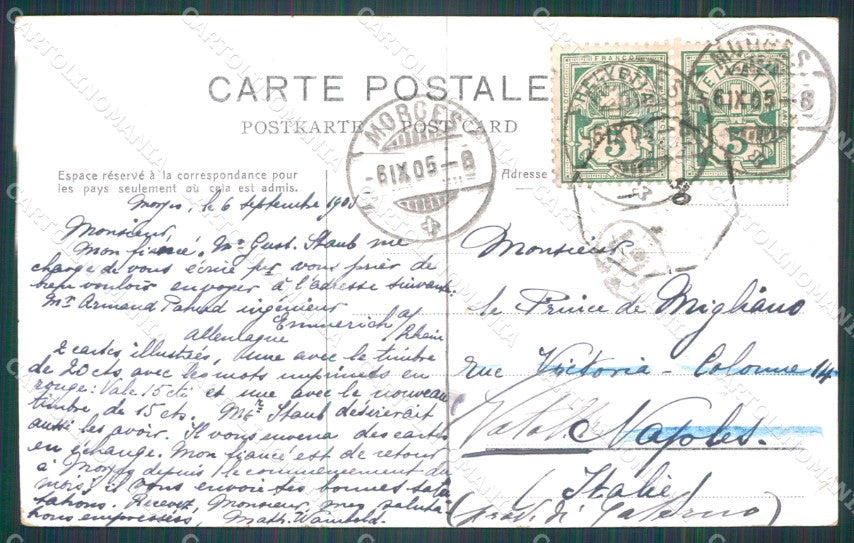 CARTE POSTALE
POSTKARTE POST CARD
Espace réservé à la correspondance pour
les pays seulement où cela est admis.
Adresse
FRANCO
HELVETIA
5
FRANCO
HELVETIA
5
MORGES
6 IX 05 - 8
MORGES
6 IX 05 - 8
Morges, le 6 septembre 190
Monsieur,
Mon fiancé, Mr Gust. Staub me
charge de vous écrire pr vous prier de
bien vouloir envoyer à l'adresse suivante:
Mr Armand ingénieur
Emmerich a/Rhein
Allemagne
2 cartes illustrées, une avec le timbre
de 20 cts avec les mots imprimés en
rouge: Vale 15 cti et une avec le nouveau
timbre, de 15 cts. Mr Staub désirerait
aussi les avoir. Il vous enverra des cartes
en échange. Mon fiancé est de retour
à Morges depuis le commencement du
mois; il vous envoie ses bonnes salu-
tations. Recevez, Monsieur, mes saluta-
tions empressées, Math. Wambold.
Monsieur
le Prince de Migliano
rue Victoria - Colonne 14
Naples.
(Italie)
(prov. di Salerno)
CARTOLINOMANIA